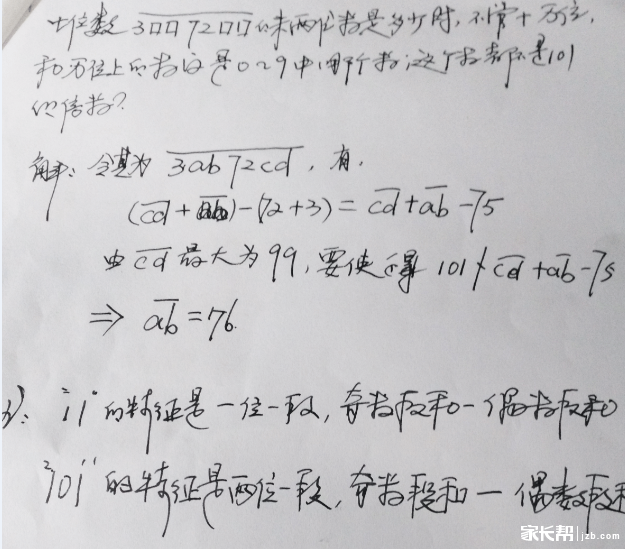 七位数 3□□72□□的末两位数是多少时,不管十万位,
和万位上的数字是0~9中哪个数,这个数都不是101
的倍数?
解:令其为 3ab72cd,有,
(cd+ab)-(72+3)=cd+ab-75
由cd最大为99,要使得 101∤cd+ab-75
⇒ ab=76.
注:"11"的特征是一位一段,奇数段和-偶数段和
"101"的特征是两位一段,奇数段和一偶数段和
家长帮 jzb.com